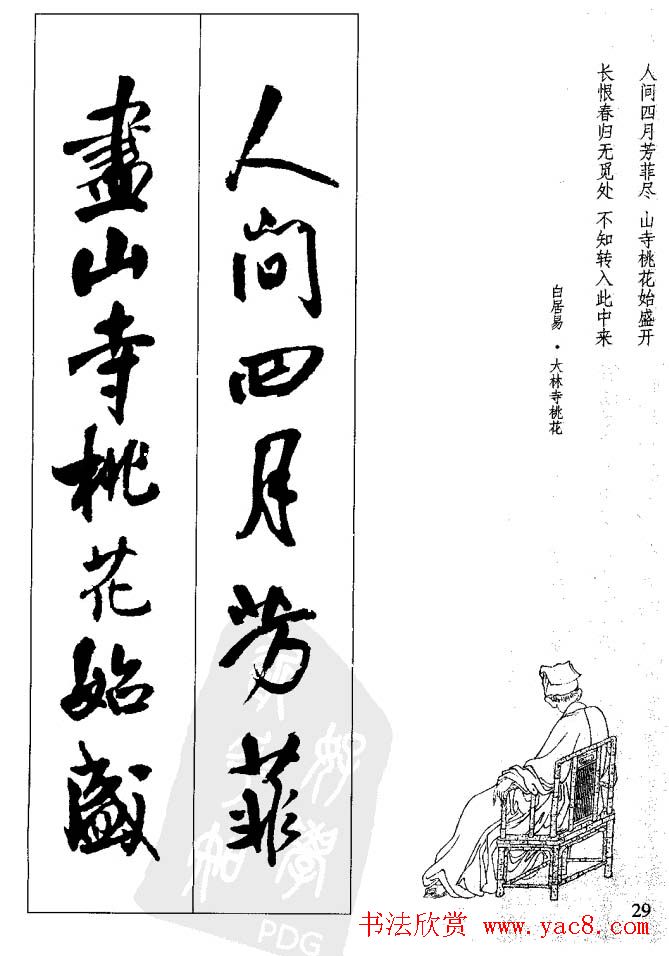 人间四月芳菲尽 山寺桃花始盛开
长恨春归无觅处 不知转入此中来
白居易·大林寺桃花
人间四月芳菲
盡山寺桃花始盛
PDG
29
书法欣赏 www.yac8.com